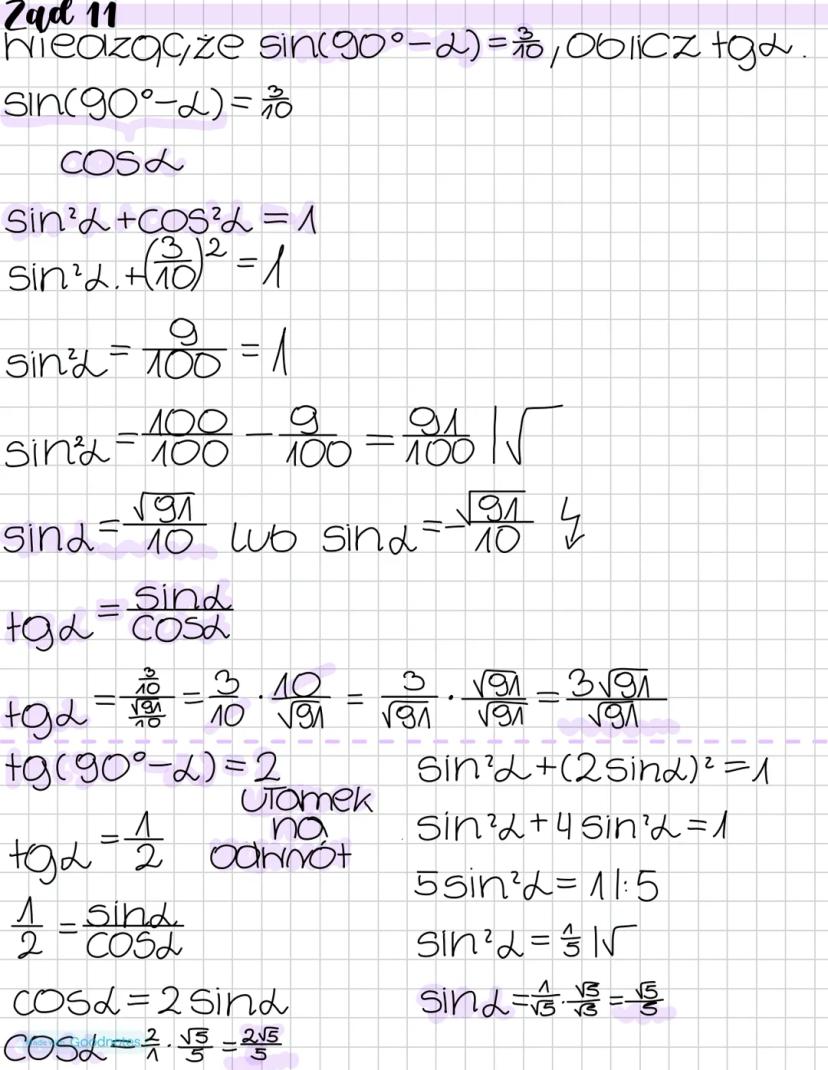 Zad 11
Wiedząc, że sin(90°-α)=3/10, oblicz tgα.
sin(90°-α)=3/10
cosα
sin²α+cos²α=1
sin²α.+(3/10)²=1
sin²α=9/100=1
sin²α=100/100-9/100=91/100 |√
sinα=√91/10 lub sinα=-√91/10 ↯
tgα=sinα/cosα
tgα=(3/10)/(√91/10)=3/10·10/√91=3/√91·√91/√91=3√91/√91
tg(90°-α)=2
ułamek
na
odwrót
tgα=1/2
1/2=sinα/cosα
cosα=2sinα
cosα=2/1·√5/5=2√5/5
sin²α+(2sinα)²=1
sin²α+4sin²α=1
5sin²α=1|:5
sin²α=1/5|√
sinα=1/√5·√5/√5=√5/5
Goodnotes